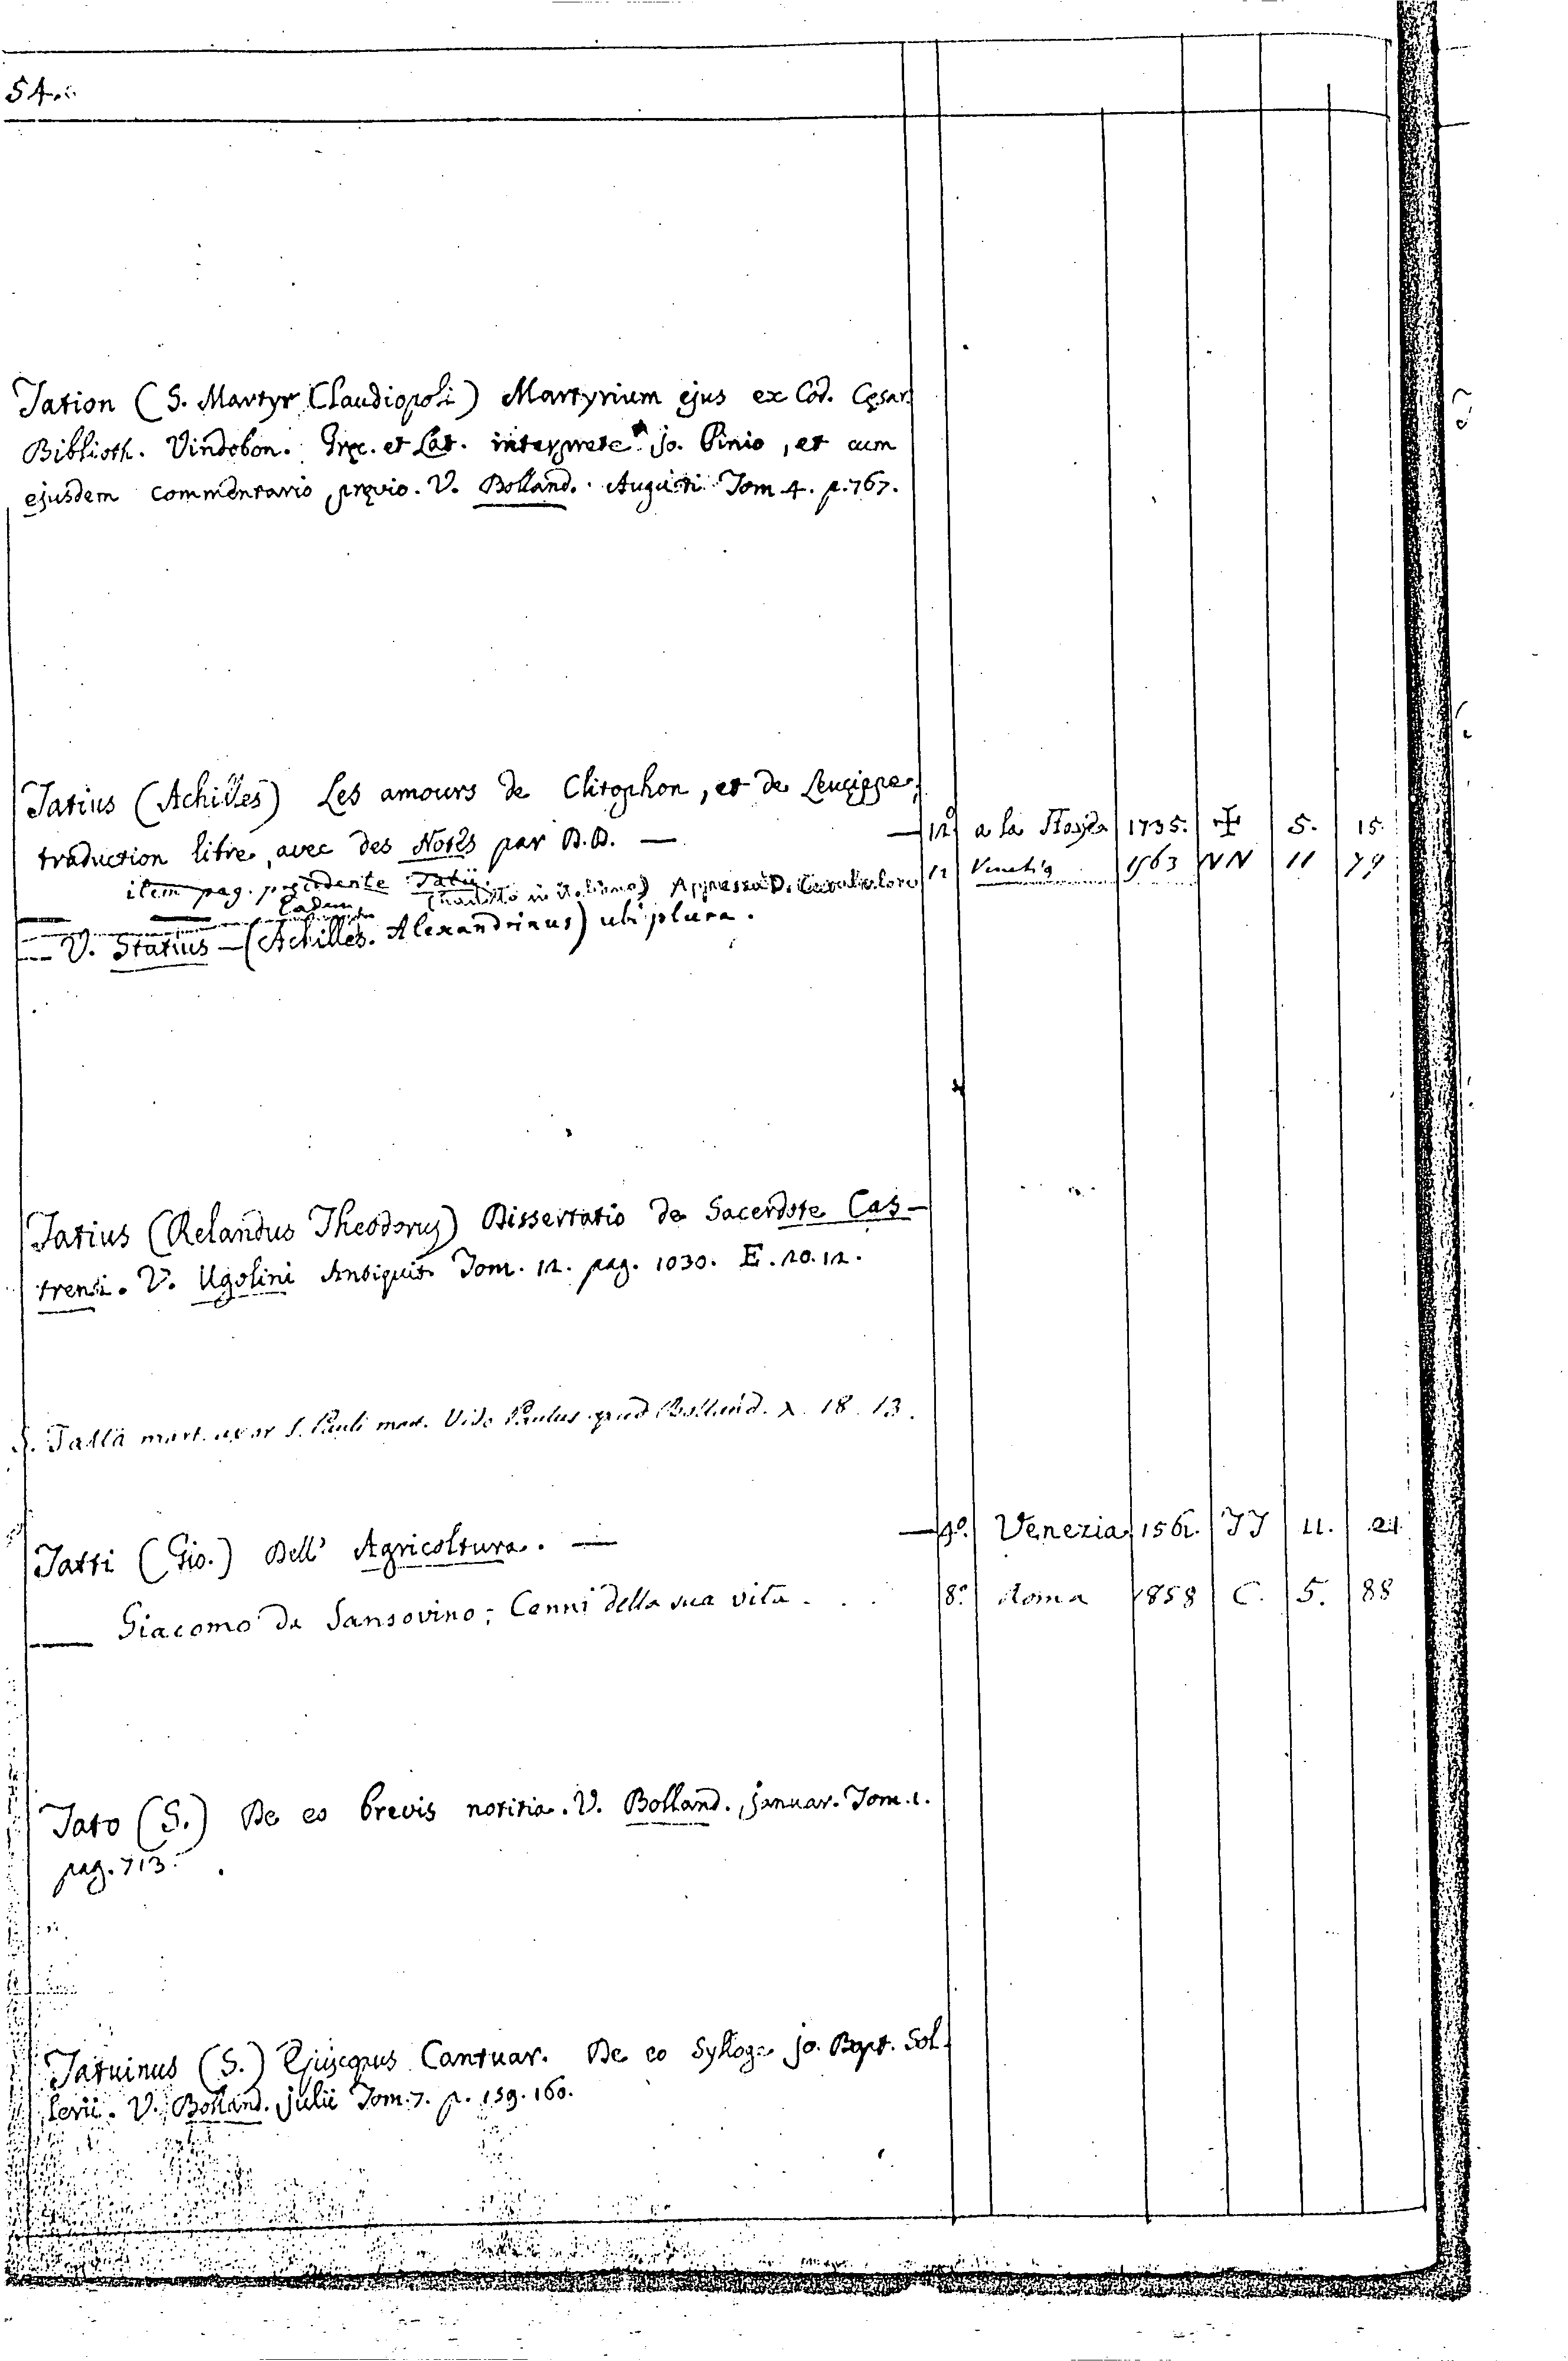 54.
Tation (S. Martyr Claudiopoli) Martyrium ejus ex Cod. Cęsar.
Biblioth. Vindobon. Gręc. et Lat. interprete Jo. Pinio, et cum
ejusdem commentario pręvio. V. Bolland. Augusti Tom 4. p. 767.
Tatius (Achilles) Les amours de Clitophon, et de Leucippe,
traduction libre, avec des Notes par D.D. — — 12º a la Haye 1735. ✠ 5. 15.
item pag. precedente Tatii
Eadem (tradotto in Italiano) Appresso D. 12 Venetia 1563 NN 11 79
V. Statius — (Achilles. Alexandrinus) ubi plura.
Tatius (Relandus Theodorus) Dissertatio de Sacerdote Cas-
trensi. V. Ugolini Antiquit. Tom. 12. pag. 1030. E. 20. 12.
S. Tatta mart. uxor S. Pauli mart. Vide Paulus apud Bolland. X. 18. 13.
Tatti (Gio.) Dell' Agricoltura. — — 4º. Venezia 1561. JJ 11. 21.
— Giacomo da Sansovino; Cenni della sua vita . . . 8º. Roma 1858 C. 5. 88
Tato (S.) De eo brevis notitia. V. Bolland. Januar. Tom. 1.
pag. 713.
Tatuinus (S.) Episcopus Cantuar. De eo Sylloge Jo. Bapt. Sol-
lerii. V. Bolland. Julii Tom. 7. p. 159. 160.